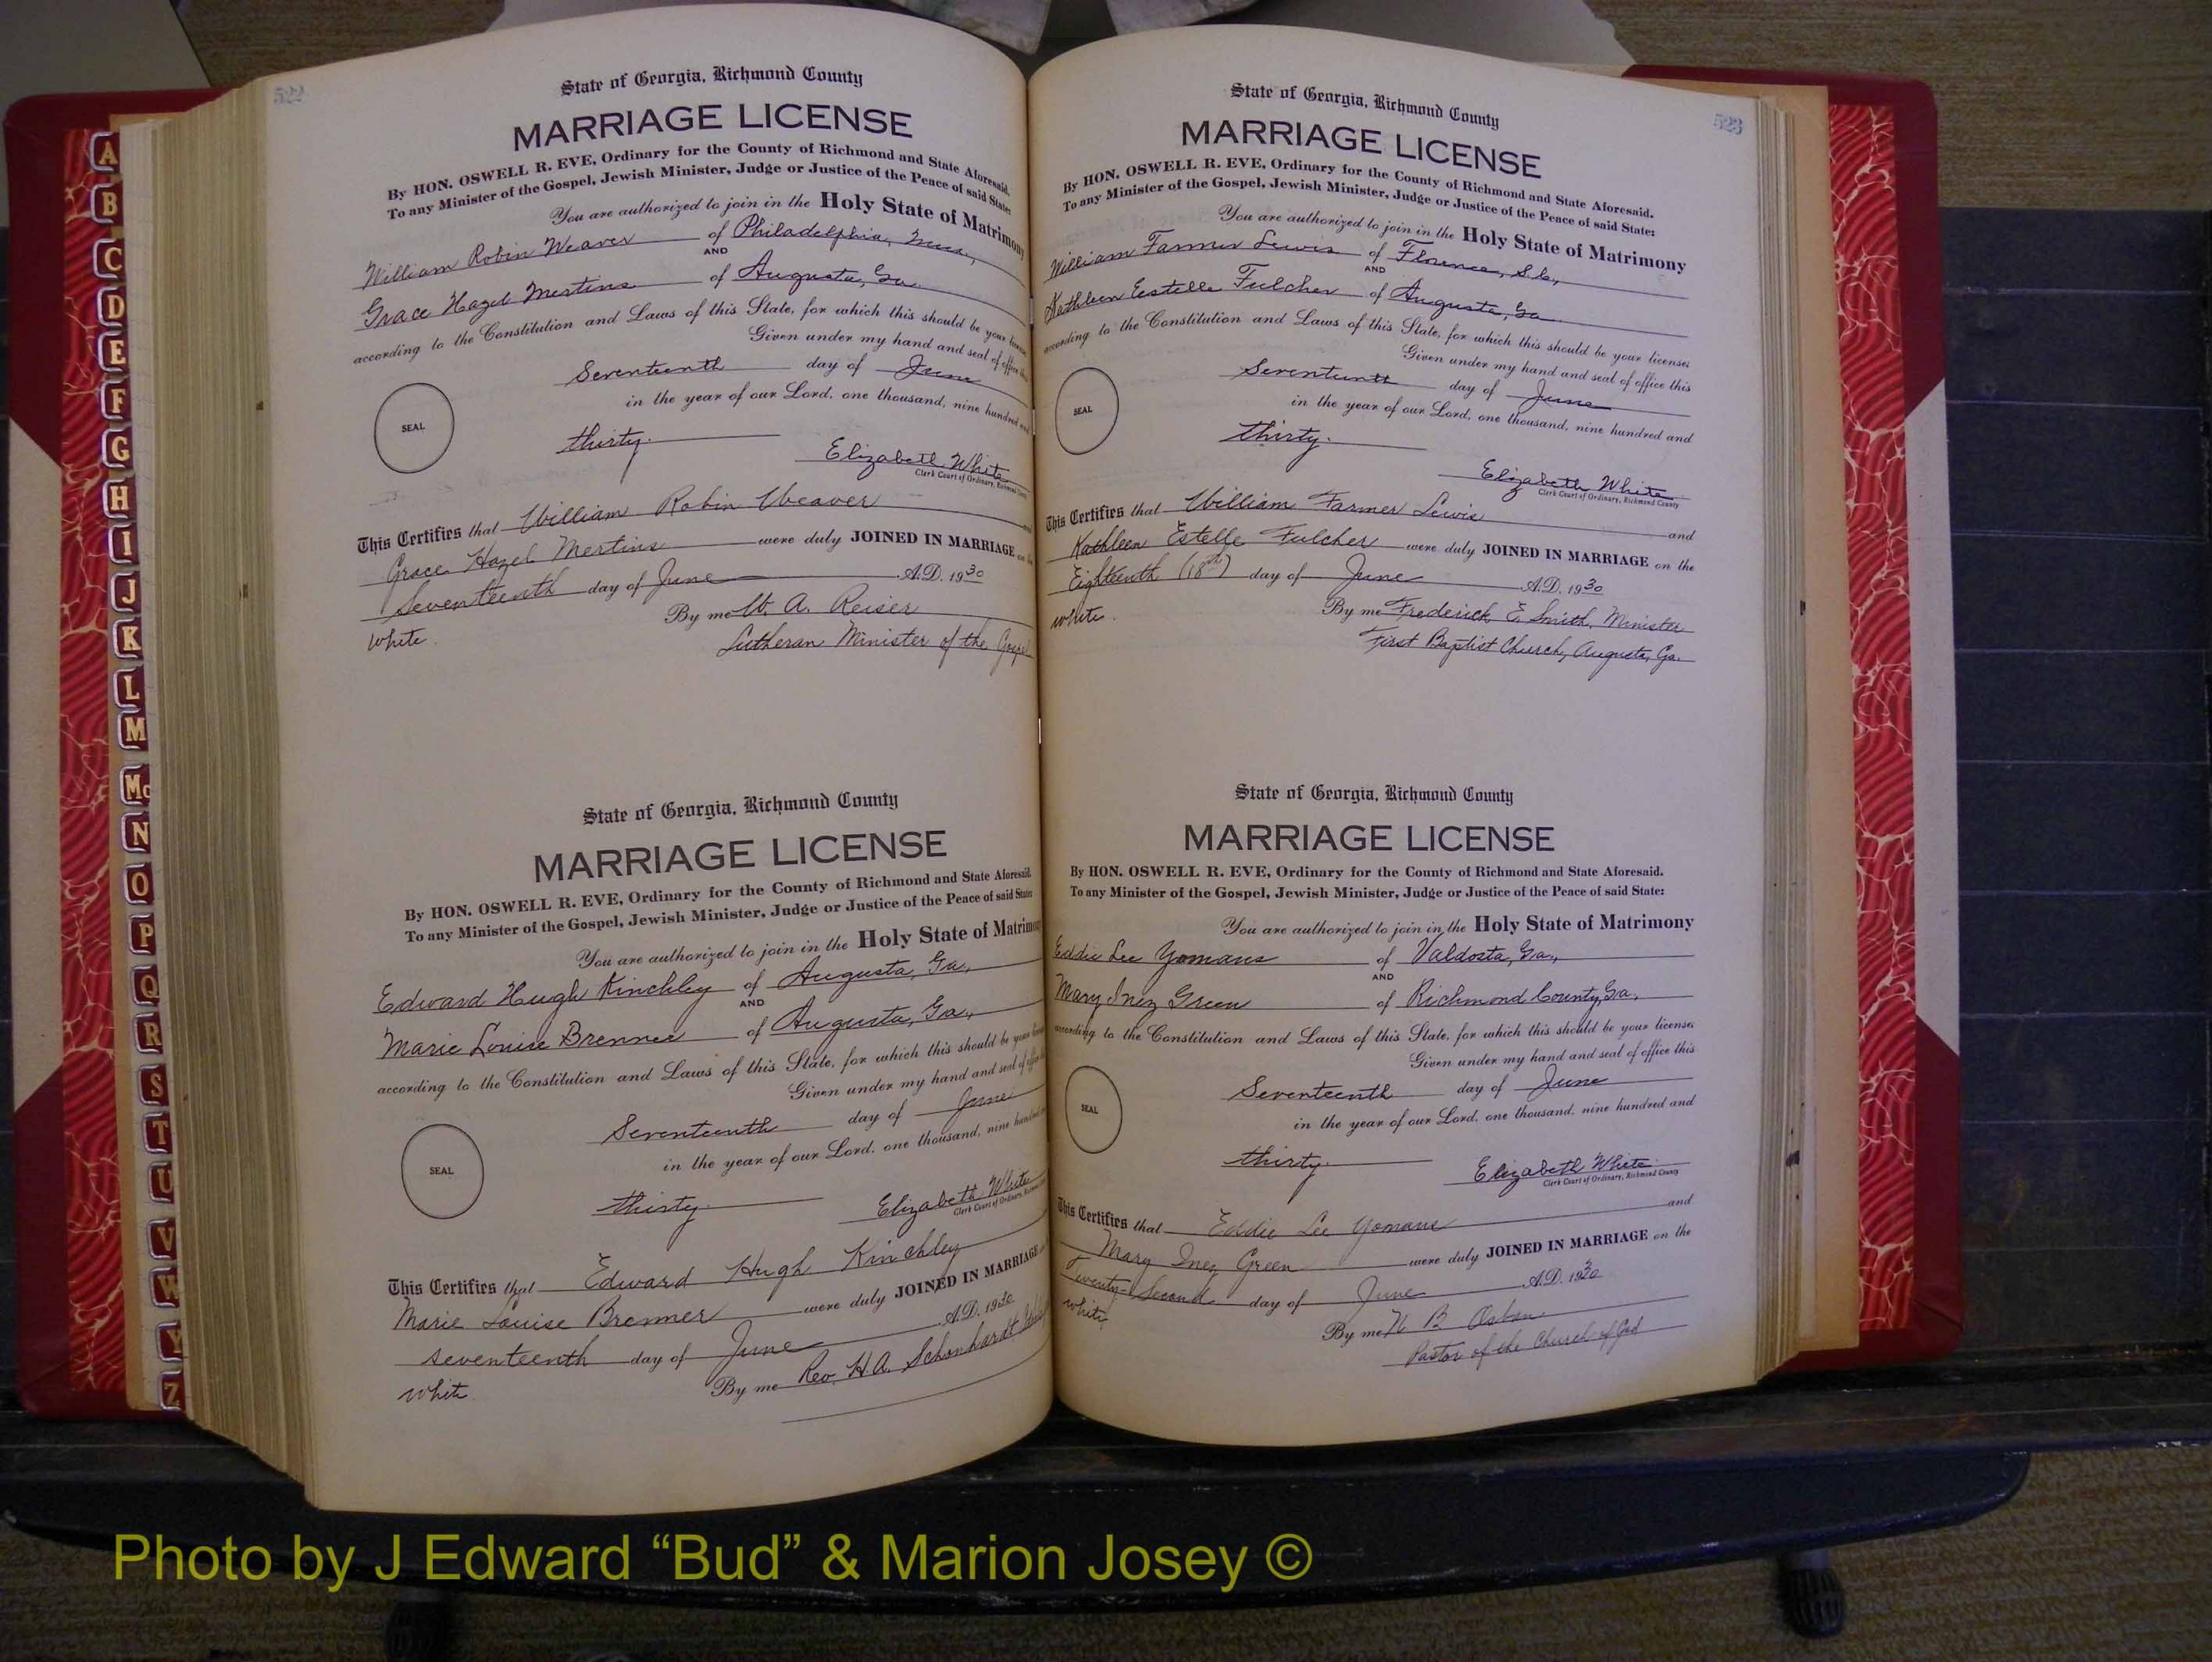 A
B
C
D
E
F
G
H
I
J
K
L
M
Mc
N
O
P
Q
R
S
T
U
V
W
Y
Z
522
State of Georgia, Richmond County
MARRIAGE LICENSE
By HON. OSWELL R. EVE, Ordinary for the County of Richmond and State Aforesaid.
To any Minister of the Gospel, Jewish Minister, Judge or Justice of the Peace of said State:
You are authorized to join in the Holy State of Matrimony
William Robin Weaver of Philadelphia,
AND
Grace Hazel Mertins of Augusta, Ga.
according to the Constitution and Laws of this State, for which this should be your
Given under my hand and seal of office
Seventeenth day of June
in the year of our Lord, one thousand, nine hundred and
SEAL
thirty.
Elizabeth White
Clerk Court of Ordinary, Richmond
This Certifies that William Robin Weaver
Grace Hazel Mertins were duly JOINED IN MARRIAGE on
Seventeenth day of June A.D. 1930
By me W. A. Reiser
white. Lutheran Minister of the Gospel
State of Georgia, Richmond County
MARRIAGE LICENSE
By HON. OSWELL R. EVE, Ordinary for the County of Richmond and State Aforesaid.
To any Minister of the Gospel, Jewish Minister, Judge or Justice of the Peace of said State:
You are authorized to join in the Holy State of Matrimony
Edward Hugh Kinchley of Augusta, Ga.,
AND
Marie Louise Brenner of Augusta, Ga.,
according to the Constitution and Laws of this State, for which this should be your
Given under my hand and seal of
Seventeenth day of June
in the year of our Lord, one thousand, nine hundred
SEAL
thirty.
Elizabeth White
Clerk Court of Ordinary,
This Certifies that Edward Hugh Kinchley
Marie Louise Brenner were duly JOINED IN MARRIAGE
seventeenth day of June A.D. 1930
white. By me Rev. H. A. Schonhardt
523
State of Georgia, Richmond County
MARRIAGE LICENSE
By HON. OSWELL R. EVE, Ordinary for the County of Richmond and State Aforesaid.
To any Minister of the Gospel, Jewish Minister, Judge or Justice of the Peace of said State:
You are authorized to join in the Holy State of Matrimony
William Farmer Lewis of Florence, S.C.,
AND
Kathleen Eestelle Fulcher of Augusta, Ga.
according to the Constitution and Laws of this State, for which this should be your license:
Given under my hand and seal of office this
Seventeenth day of June
in the year of our Lord, one thousand, nine hundred and
SEAL
thirty.
Elizabeth White
Clerk Court of Ordinary, Richmond County
This Certifies that William Farmer Lewis and
Kathleen Estelle Fulcher were duly JOINED IN MARRIAGE on the
Eighteenth (18th) day of June A.D. 1930
white. By me Frederick E. Smith, Minister
First Baptist Church, Augusta, Ga.
State of Georgia, Richmond County
MARRIAGE LICENSE
By HON. OSWELL R. EVE, Ordinary for the County of Richmond and State Aforesaid.
To any Minister of the Gospel, Jewish Minister, Judge or Justice of the Peace of said State:
You are authorized to join in the Holy State of Matrimony
Eddie Lee Yomans of Valdosta, Ga.,
AND
Mary Inez Green of Richmond County, Ga.
according to the Constitution and Laws of this State, for which this should be your license:
Given under my hand and seal of office this
Seventeenth day of June
in the year of our Lord, one thousand, nine hundred and
SEAL
thirty.
Elizabeth White
Clerk Court of Ordinary, Richmond County
This Certifies that Eddie Lee Yomans and
Mary Inez Green were duly JOINED IN MARRIAGE on the
Twenty-Second day of June A.D. 1930
white By me B
Pastor of the Church of God
Photo by J Edward “Bud” & Marion Josey ©